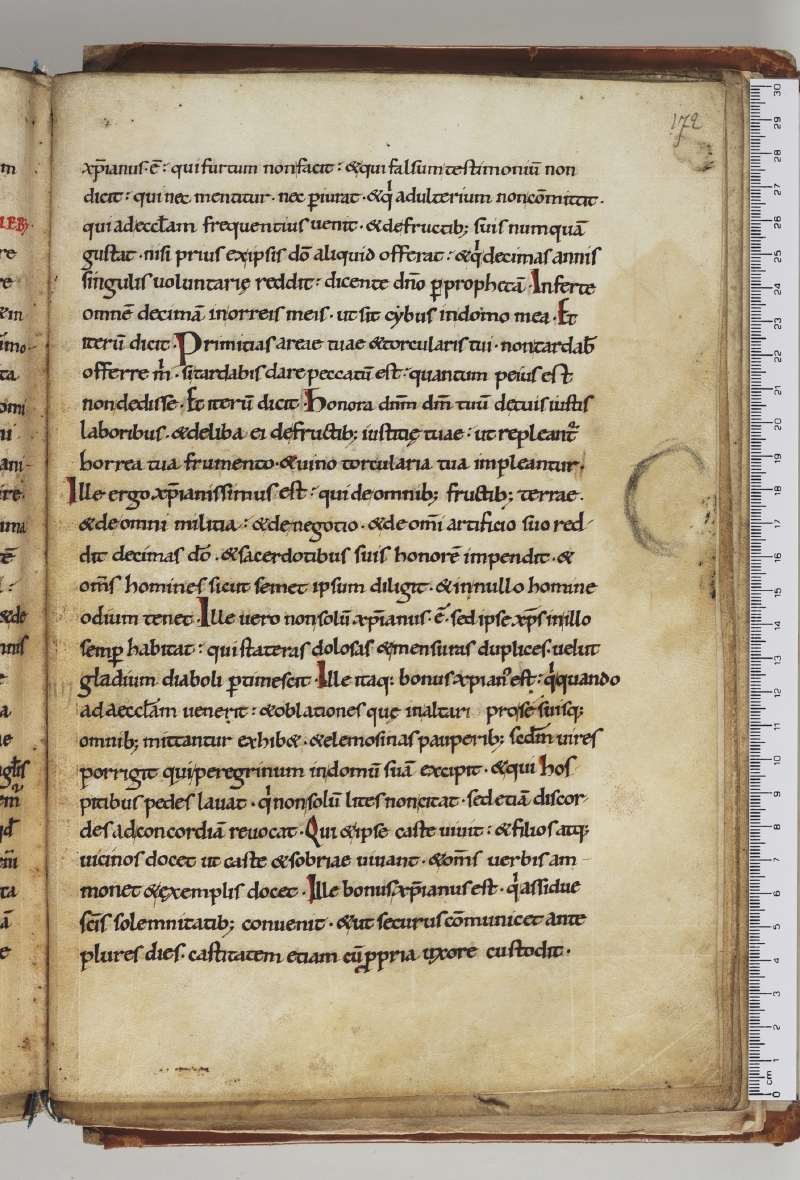 172
xp̄ianus· ē· qui furtum non facit· & qui falsum testimoniū non
dicit· qui nec mentitur· nec p̲iurat· & q̇ adulterium non cōmittit·
qui ad eccl̄am frequentius uenit· & de fructib; suis numquā
gustat· nisi prius ex ipsis dō aliquid offerat· & q̇ decimas annis
singulis uoluntarię reddit· dicente dn̄o p̲ prophetā· Inferte
omnē decimā in orreis meis· ut sit cybus in domo mea· Et
iterū dicit· Primitias areae tuae & torcularis tui· non tardab̄
offerre m̄· si tardabis dare peccatū est· quantum peius est
non dedisse· Et iterū dicit· Honora dn̄m dm̄ tuū de tuis iustis
laboribus· & deliba ei de fructib; iustitię tuae· ut repleant᷑
horrea tua frumento· & uino torcularia tua impleantur·
Ille ergo xp̄ianissimus est· qui de omnib; fructib; terrae·
& de omni militia· & de negotio· & de om̄i artificio suo red-
dit decimas dō· & sacerdotibus suis honorē impendit· &
om̄s homines sicut semet ipsum diligit· & in nullo homine
odium tenet· Ille uero non solū xp̄ianus· ē· sed ipse xp̄s in illo
semp̲ habitat· qui stateras dolosas & mensuras duplices· uelut
gladium diaboli p̲timescit· Ille itaq; bonus xp̄ian᷒ est· q̇ quando
ad aeccl̄am uenerit· & oblationes quę in altari pro se suisq;
omnib; mittantur exhib&· & elemosinas pauperib; sedm̄ uires
porrigit qui peregrinum in domū suā excipit· & qui hos
pitibus pedes lauat· q̇ non solū lites non citat· sed etiā discor-
des ad concordiā reuocat· Qui & ipse caste uiuit· & filios atq;
uicinos docet ut caste & sobriae uiuant· & om̄s uerbis am-
monet & exemplis docet· Ille bonus xp̄ianus est· q̇ assidue
sc̄is solemnitatib; conuenit· & ut securus cōmunicet ante
plures dies· castitatem etiam cū p̲pria uxore custodit·